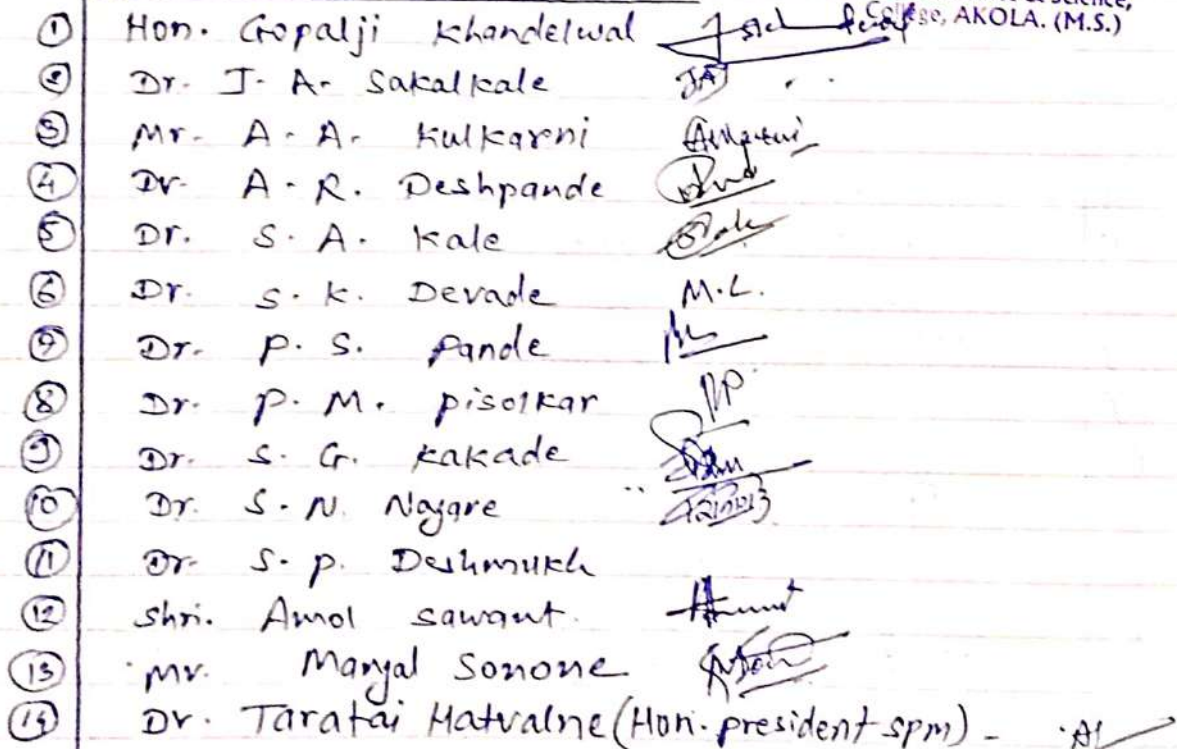 Science,
College, AKOLA. (M.S.)
① Hon. Gopalji Khandelwal
② Dr. J. A. Sakalkale JAS
③ Mr. A. A. Kulkarni
④ Dr. A. R. Deshpande
⑤ Dr. S. A. Kale
⑥ Dr. S. K. Devade M.L.
⑦ Dr. P. S. Pande
⑧ Dr. P. M. Pisolkar
⑨ Dr. S. G. Kakade
⑩ Dr. S. N. Nagare
⑪ Dr. S. P. Deshmukh
⑫ Shri. Amol Sawant.
⑬ Mr. Mangal Sonone
⑭ Dr. Taratai Hatvalne (Hon. president spm) -